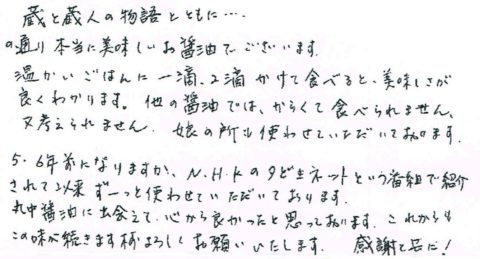 蔵と蔵人の物語とともに…
の通り本当に美味しいお醤油でございます.
温かいごはんに一滴、2滴かけて食べると、美味しさが
良くわかります。他の醤油では、からくて食べられません、
又考えられません. 娘の所も使わせていただいております.
5.6年前になりますか、N.H.Kの夕どきネットという番組で紹介
されて以来ずーっと使わせていただいております.
丸中醤油に出会えて、心から良かったと思っております. これからも
この味が続きます様よろしくお願いいたします. 感謝と共に!